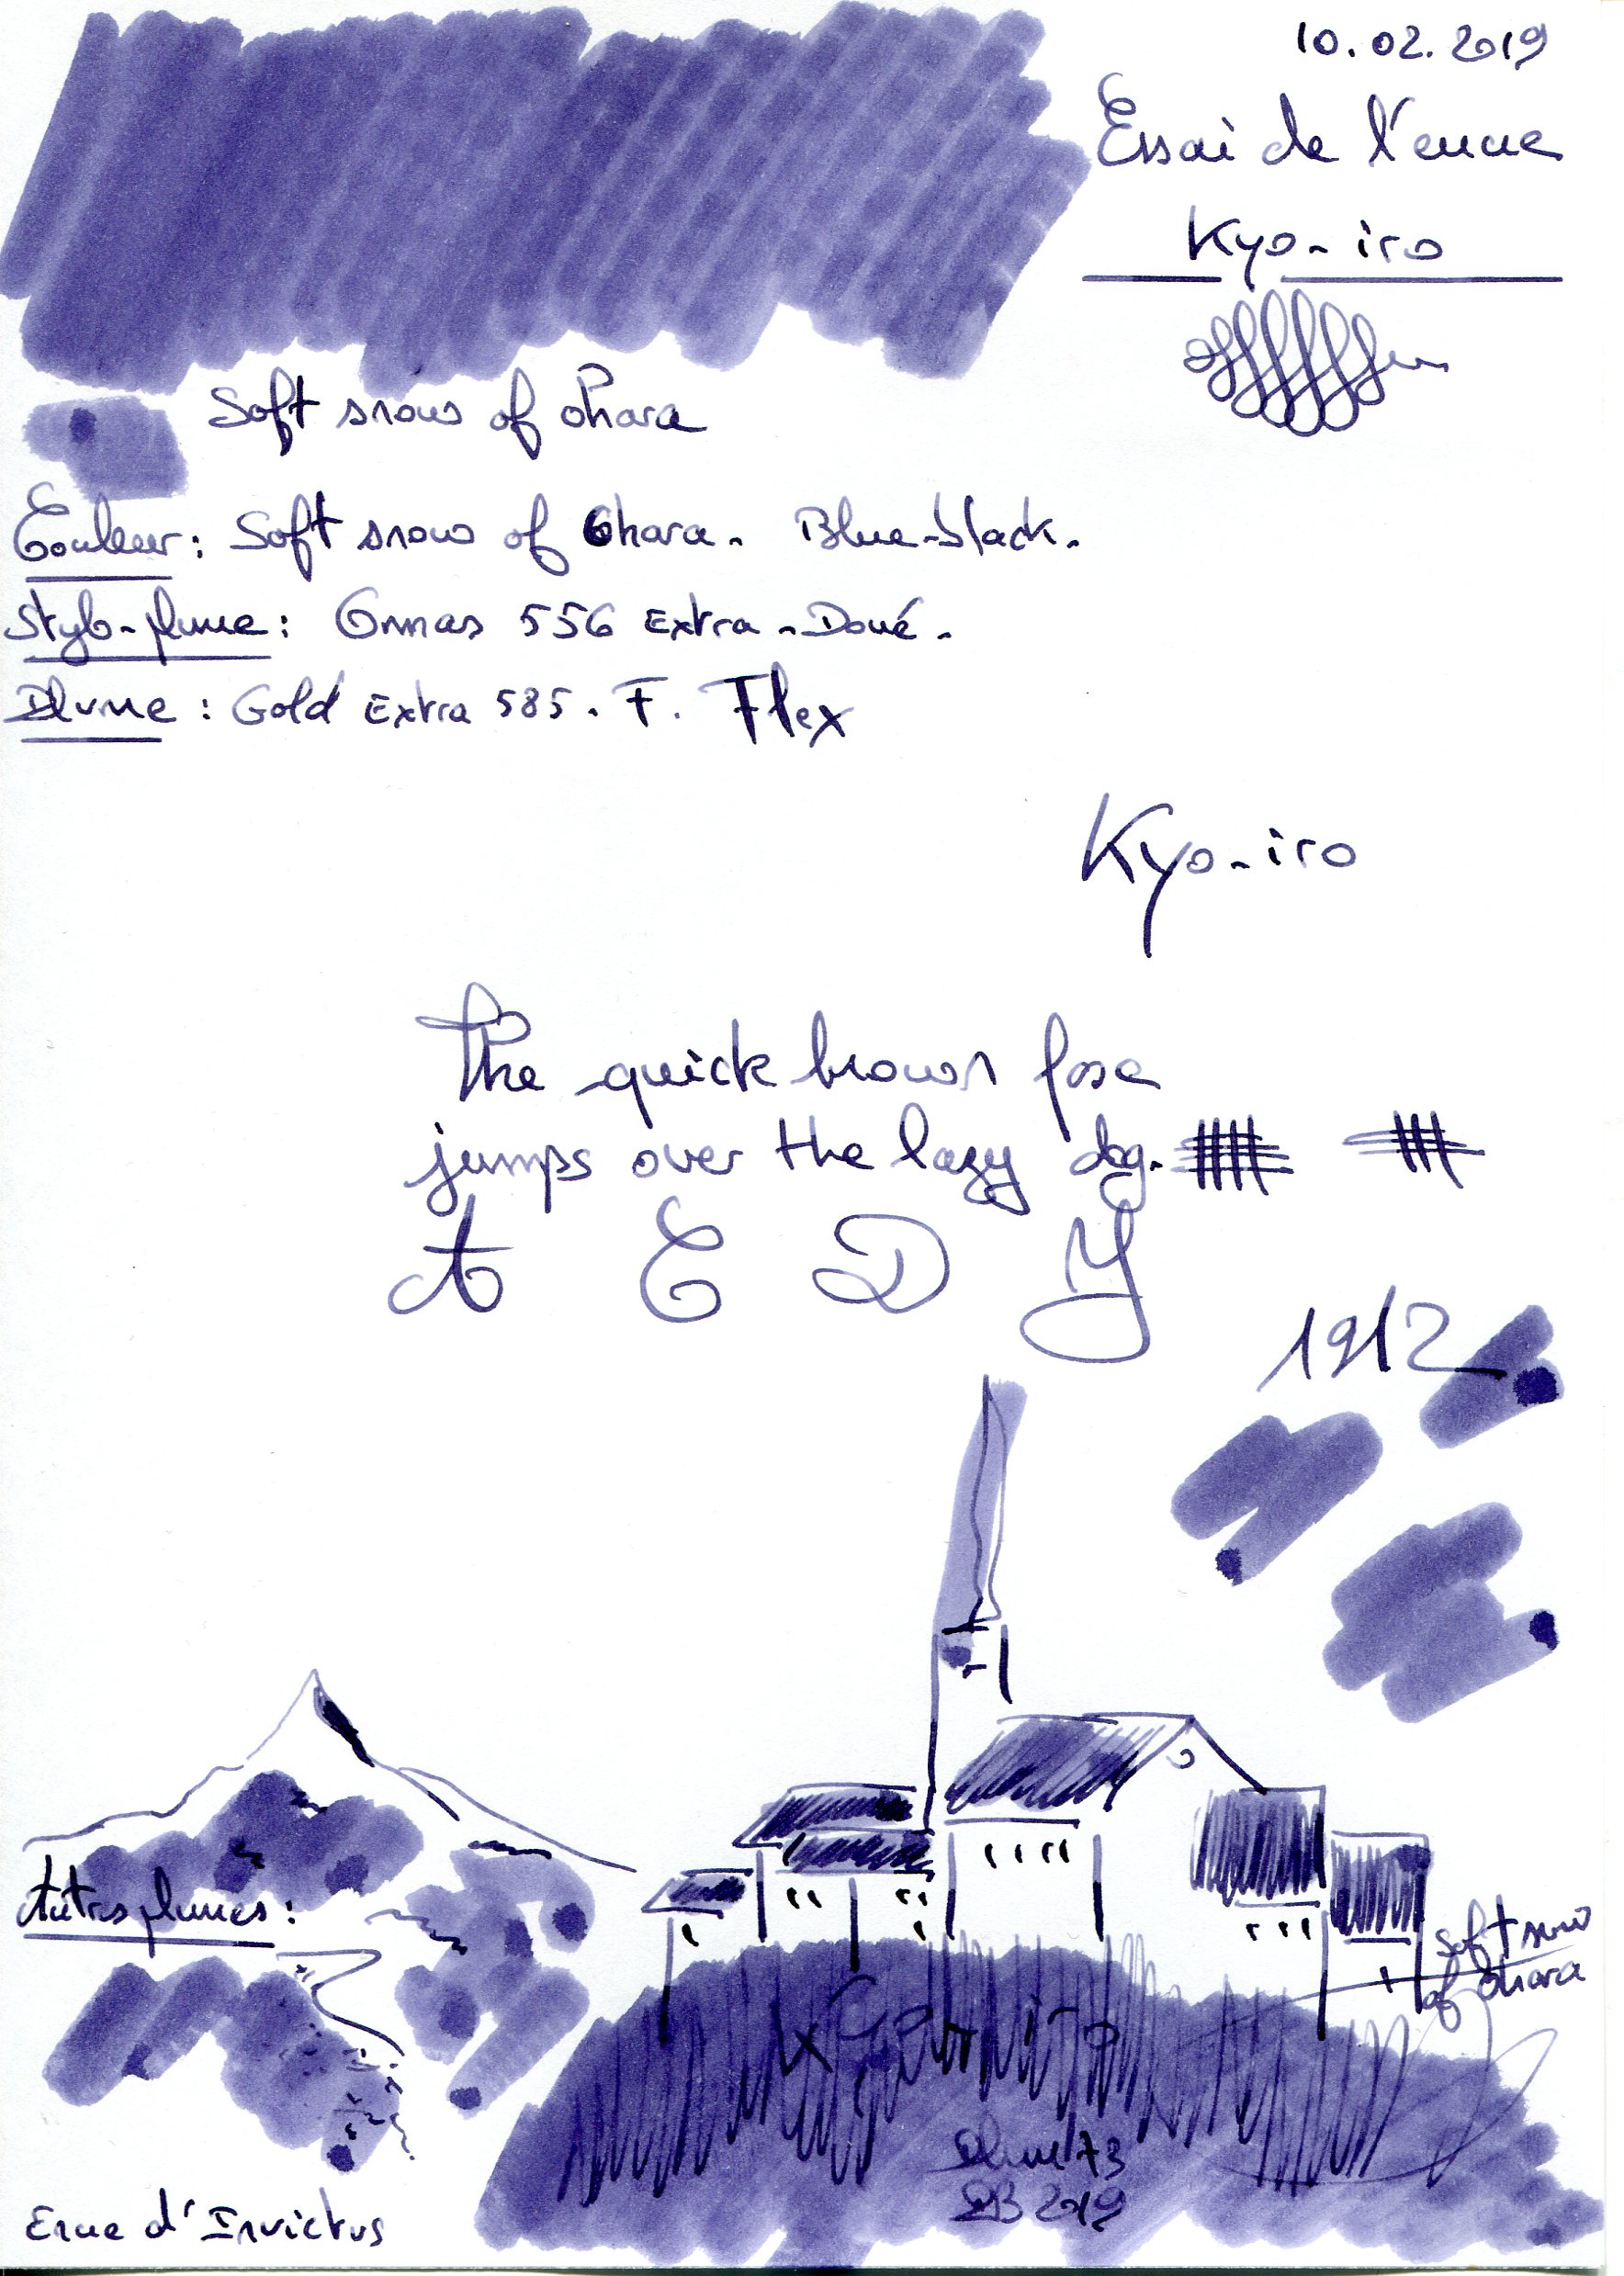 10.02.2019
Essai de l'encre
Kyo-iro
Soft snow of Ohara
Couleur: Soft snow of Ohara. Blue-black.
Stylo-plume: Omas 556 Extra - Doué.
Plume: Gold Extra 585. F. Flex
Kyo-iro
The quick brown fox
jumps over the lazy dog.
A E D Y
1912
Autres plumes:
Soft snow
of Ohara
Plume 73
2019
Encre d'Invictus